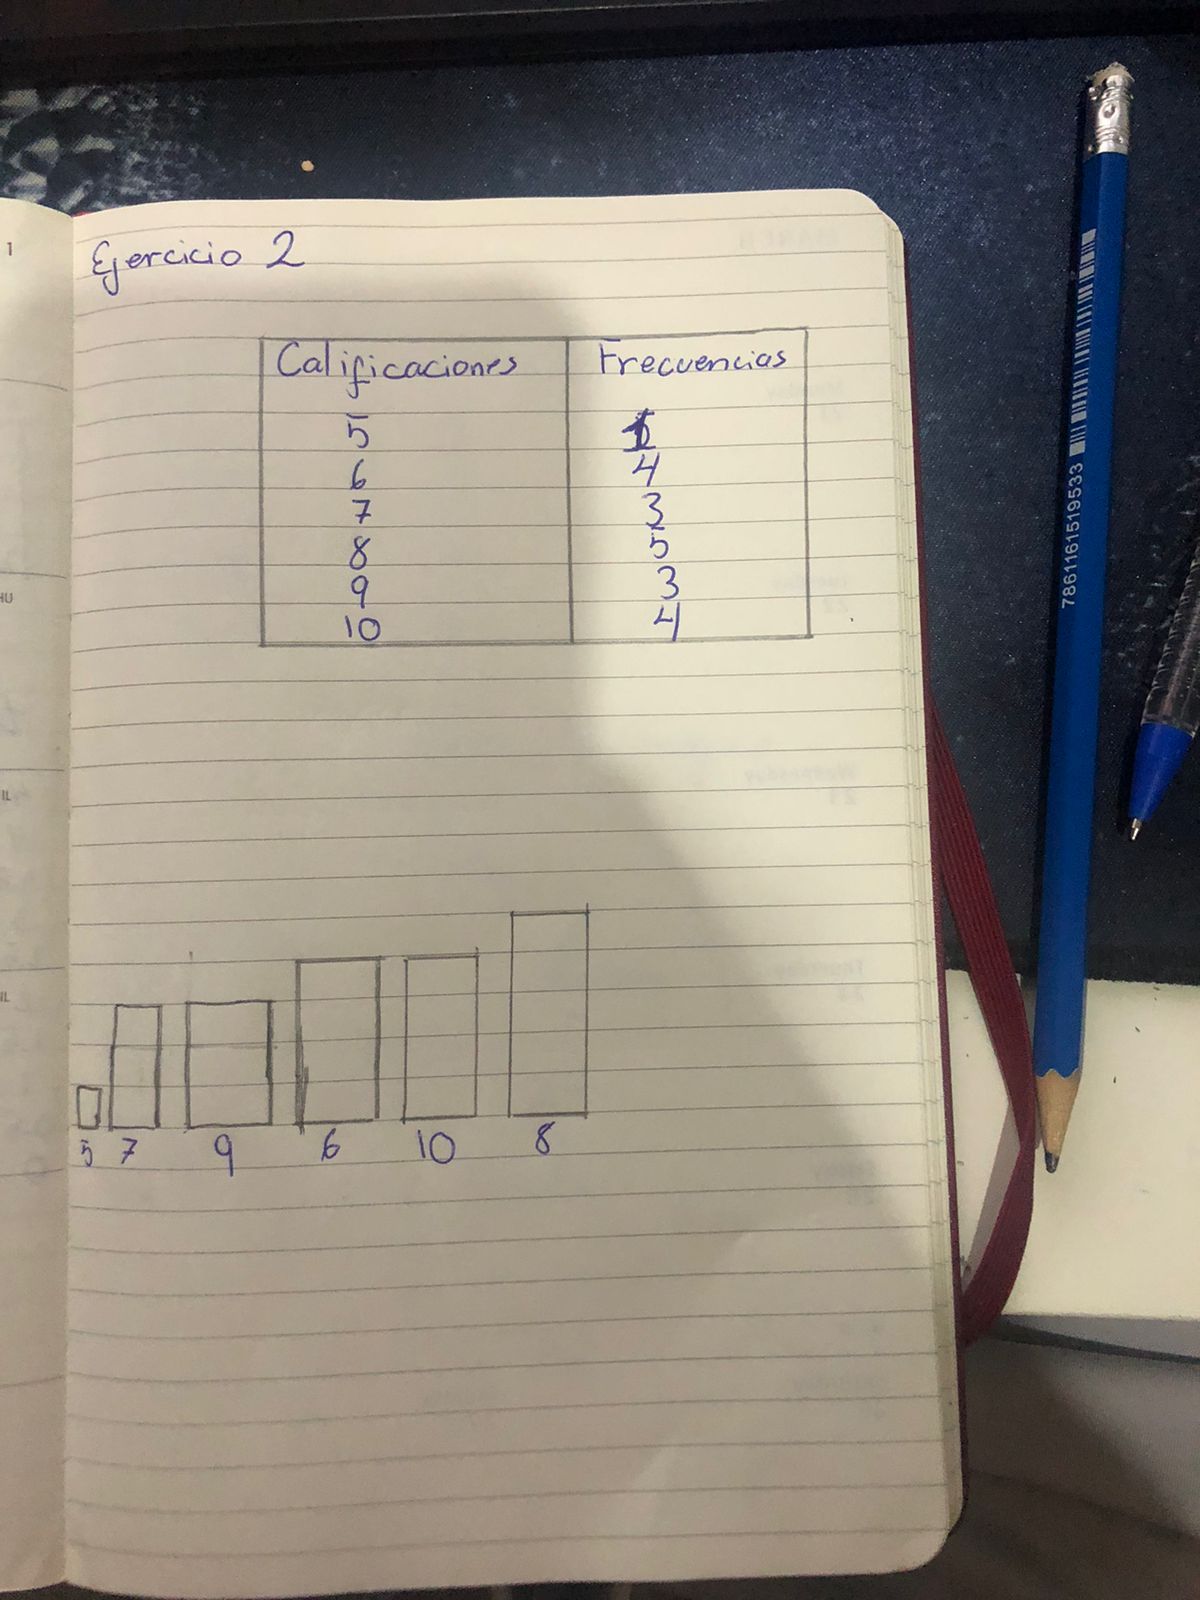 Ejercicio 2
Calificaciones Frecuencias
5 1
6 4
7 3
8 5
9 3
10 4
5 7 9 6 10 8
7861161519533